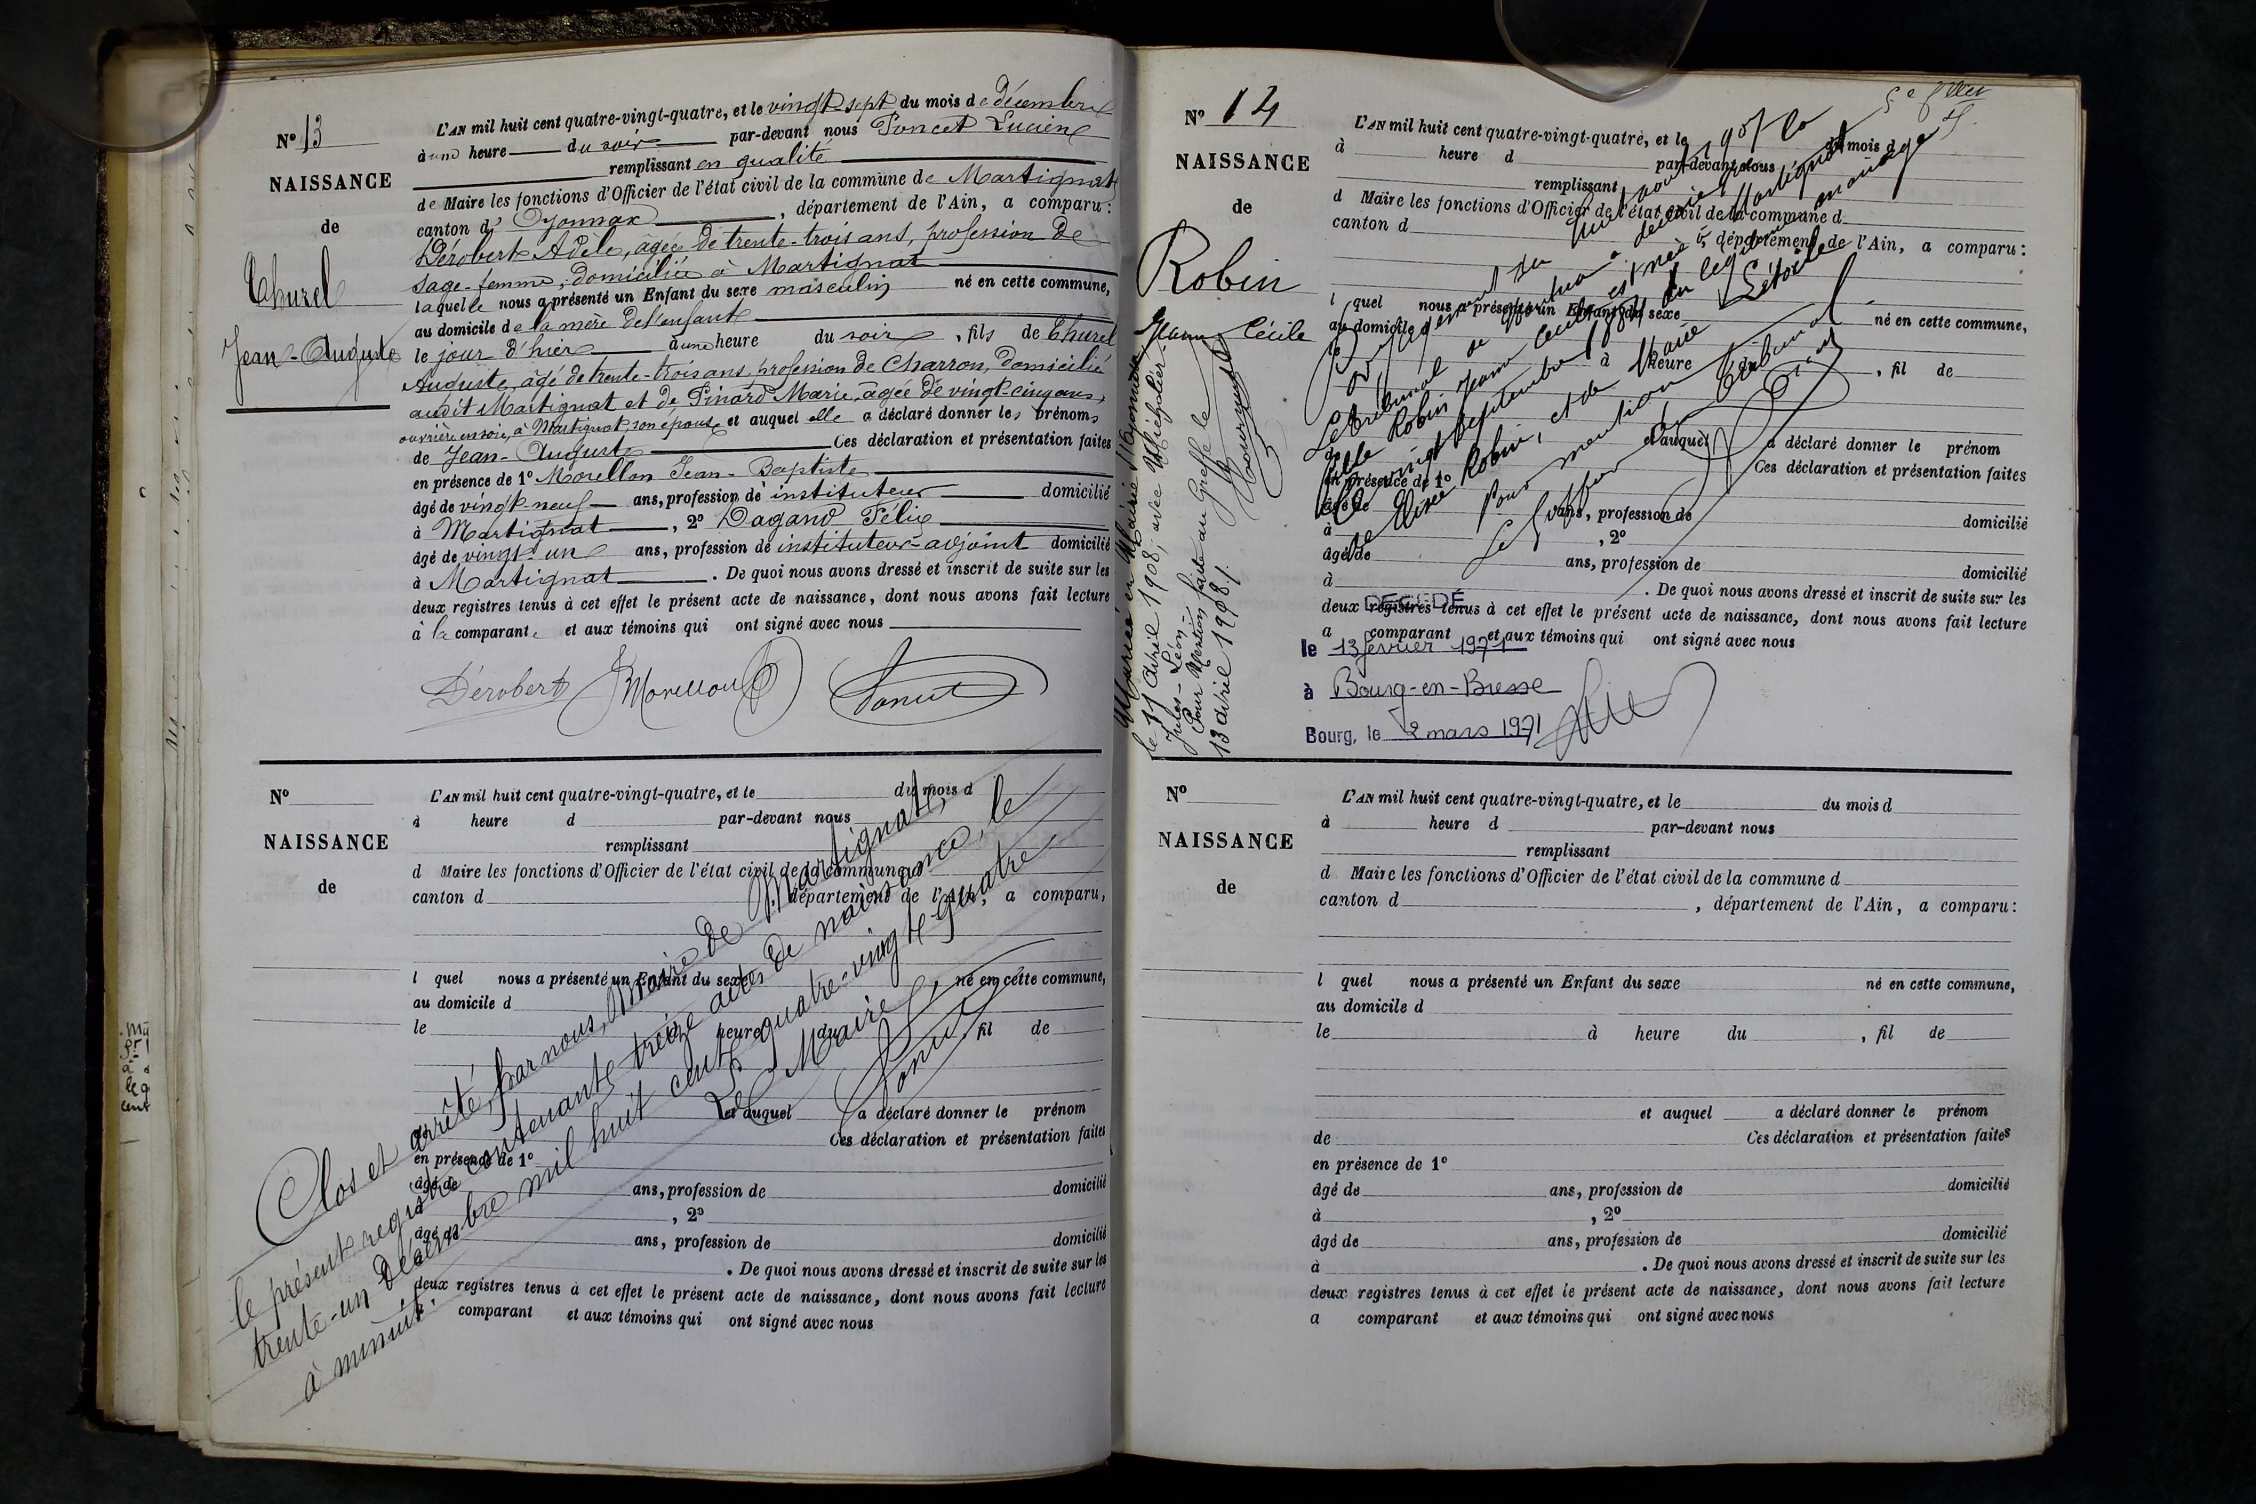 N° 13
NAISSANCE
de
Thurel
Jean-Auguste
L'AN mil huit cent quatre-vingt-quatre, et le vingt-sept du mois de décembre
à une heure du soir par-devant nous Poncet Lucien
remplissant en qualité
de Maire les fonctions d'Officier de l'état civil de la commune de Martignat
canton d'Oyonnax, département de l'Ain, a comparu:
Dérobert Adèle, âgée de trente-trois ans, profession de
sage-femme, domiciliée à Martignat
laquelle nous a présenté un Enfant du sexe masculin né en cette commune,
au domicile de la mère de l'enfant
le jour d'hier à une heure du soir, fils de Thurel
Auguste, âgé de trente-trois ans, profession de Charron, domicilié
audit Martignat et de Pinard Marie, âgée de vingt-cinq ans,
ouvrière en soie, à Martignat, son épouse et auquel elle a déclaré donner les prénoms
de Jean-Auguste Ces déclaration et présentation faites
en présence de 1° Morellon Jean-Baptiste
âgé de vingt-neuf ans, profession de instituteur domicilié
à Martignat, 2° Dagand Félix
âgé de vingt-un ans, profession de instituteur-adjoint domicilié
à Martignat. De quoi nous avons dressé et inscrit de suite sur les
deux registres tenus à cet effet le présent acte de naissance, dont nous avons fait lecture
à la comparante et aux témoins qui ont signé avec nous
Dérobert Morellon Poncet
N°
NAISSANCE
de
L'AN mil huit cent quatre-vingt-quatre, et le du mois d
à heure d par-devant nous
remplissant
d Maire les fonctions d'Officier de l'état civil de la commune d
canton d département de l'Ain, a comparu,
l quel nous a présenté un Enfant du sexe né en cette commune,
au domicile d
le heure du, fil de
et auquel a déclaré donner le prénom
Ces déclaration et présentation faites
en présence de 1°
âgé de ans, profession de domicilié
, 2°
âgé de ans, profession de domicilié
. De quoi nous avons dressé et inscrit de suite sur les
deux registres tenus à cet effet le présent acte de naissance, dont nous avons fait lecture
comparant et aux témoins qui ont signé avec nous
Clos et arrêté, par nous, Maire de Martignat,
le présent registre contenant treize actes de naissance, le
trente-un décembre mil huit cent quatre-vingt-quatre
à minuit.
Le Maire
Poncet
N° 14
NAISSANCE
de
Robin
Jeanne Cécile
L'AN mil huit cent quatre-vingt-quatre, et le du mois d
à heure d par-devant nous
remplissant
d Maire les fonctions d'Officier de l'état civil de la commune d
canton d
, département de l'Ain, a comparu:
l quel nous a présenté un Enfant du sexe né en cette commune,
au domicile d
à heure du, fil de
et auquel a déclaré donner le prénom
Ces déclaration et présentation faites
en présence de 1°
âgé de ans, profession de domicilié
à, 2°
âgé de ans, profession de domicilié
à. De quoi nous avons dressé et inscrit de suite sur les
deux registres tenus à cet effet le présent acte de naissance, dont nous avons fait lecture
a comparant et aux témoins qui ont signé avec nous
Le tribunal de
Robin Jeanne Cécile est née à Martignat
le vingt septembre 1884 du légitime mariage
de Elisée Robin, et de Marie Létoile
Pour mention
Le Greffier du Tribunal
Mariée en Mairie
le 11 avril 1908, avec
Jules-Léon.
Pour Mention faite au Greffe le
13 avril 1908.
DÉCÉDÉ
le 13 février 1971
à Bourg-en-Bresse
Bourg, le 2 mars 1971
N°
NAISSANCE
de
L'AN mil huit cent quatre-vingt-quatre, et le du mois d
à heure d par-devant nous
remplissant
d Maire les fonctions d'Officier de l'état civil de la commune d
canton d, département de l'Ain, a comparu:
l quel nous a présenté un Enfant du sexe né en cette commune,
au domicile d
le à heure du, fil de
et auquel a déclaré donner le prénom
de Ces déclaration et présentation faites
en présence de 1°
âgé de ans, profession de domicilié
à, 2°
âgé de ans, profession de domicilié
à. De quoi nous avons dressé et inscrit de suite sur les
deux registres tenus à cet effet le présent acte de naissance, dont nous avons fait lecture
a comparant et aux témoins qui ont signé avec nous